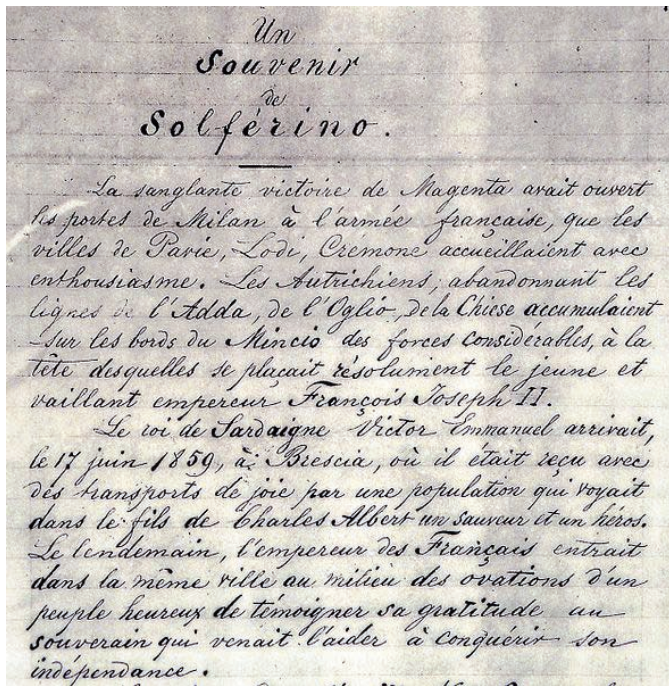 Un
Souvenir
de
Solférino.
La sanglante victoire de Magenta avait ouvert
les portes de Milan à l'armée française, que les
villes de Pavie, Lodi, Cremone accueillaient avec
enthousiasme. Les Autrichiens, abandonnant les
lignes de l'Adda, de l'Oglio, de la Chiese accumulaient
sur les bords du Mincio des forces considérables, à la
tête desquelles se plaçait résolument le jeune et
vaillant empereur François Joseph II.
Le roi de Sardaigne Victor Emmanuel arrivait,
le 17 juin 1859, à Brescia, où il était reçu avec
des transports de joie par une population qui voyait
dans le fils de Charles Albert un sauveur et un héros.
Le lendemain, l'empereur des Français entrait
dans la même ville au milieu des ovations d'un
peuple heureux de témoigner sa gratitude au
souverain qui venait l'aider à conquérir son
indépendance.